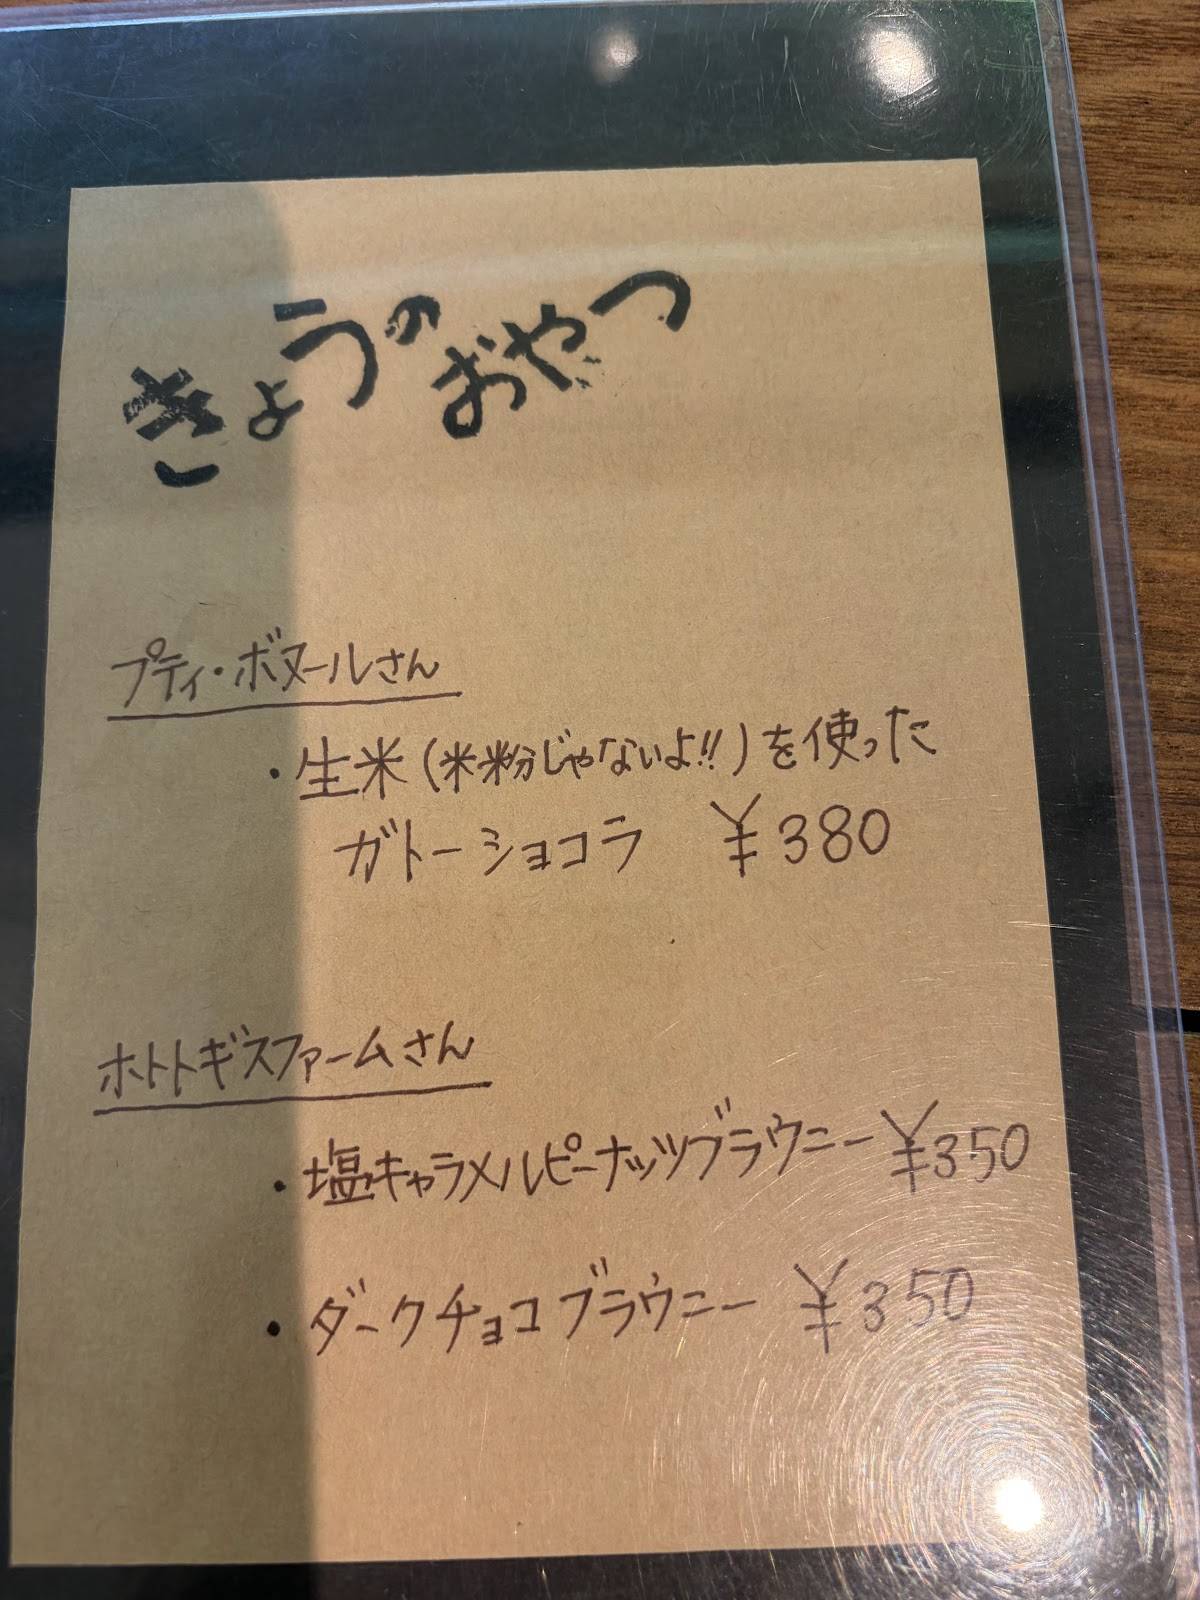 きょうのおやつ
プティ・ボヌールさん
・生米(米粉じゃないよ!!)を使った
ガトーショコラ ¥380
ホトトギスファームさん
・塩キャラメルピーナッツブラウニー ¥350
・ダークチョコブラウニー ¥350